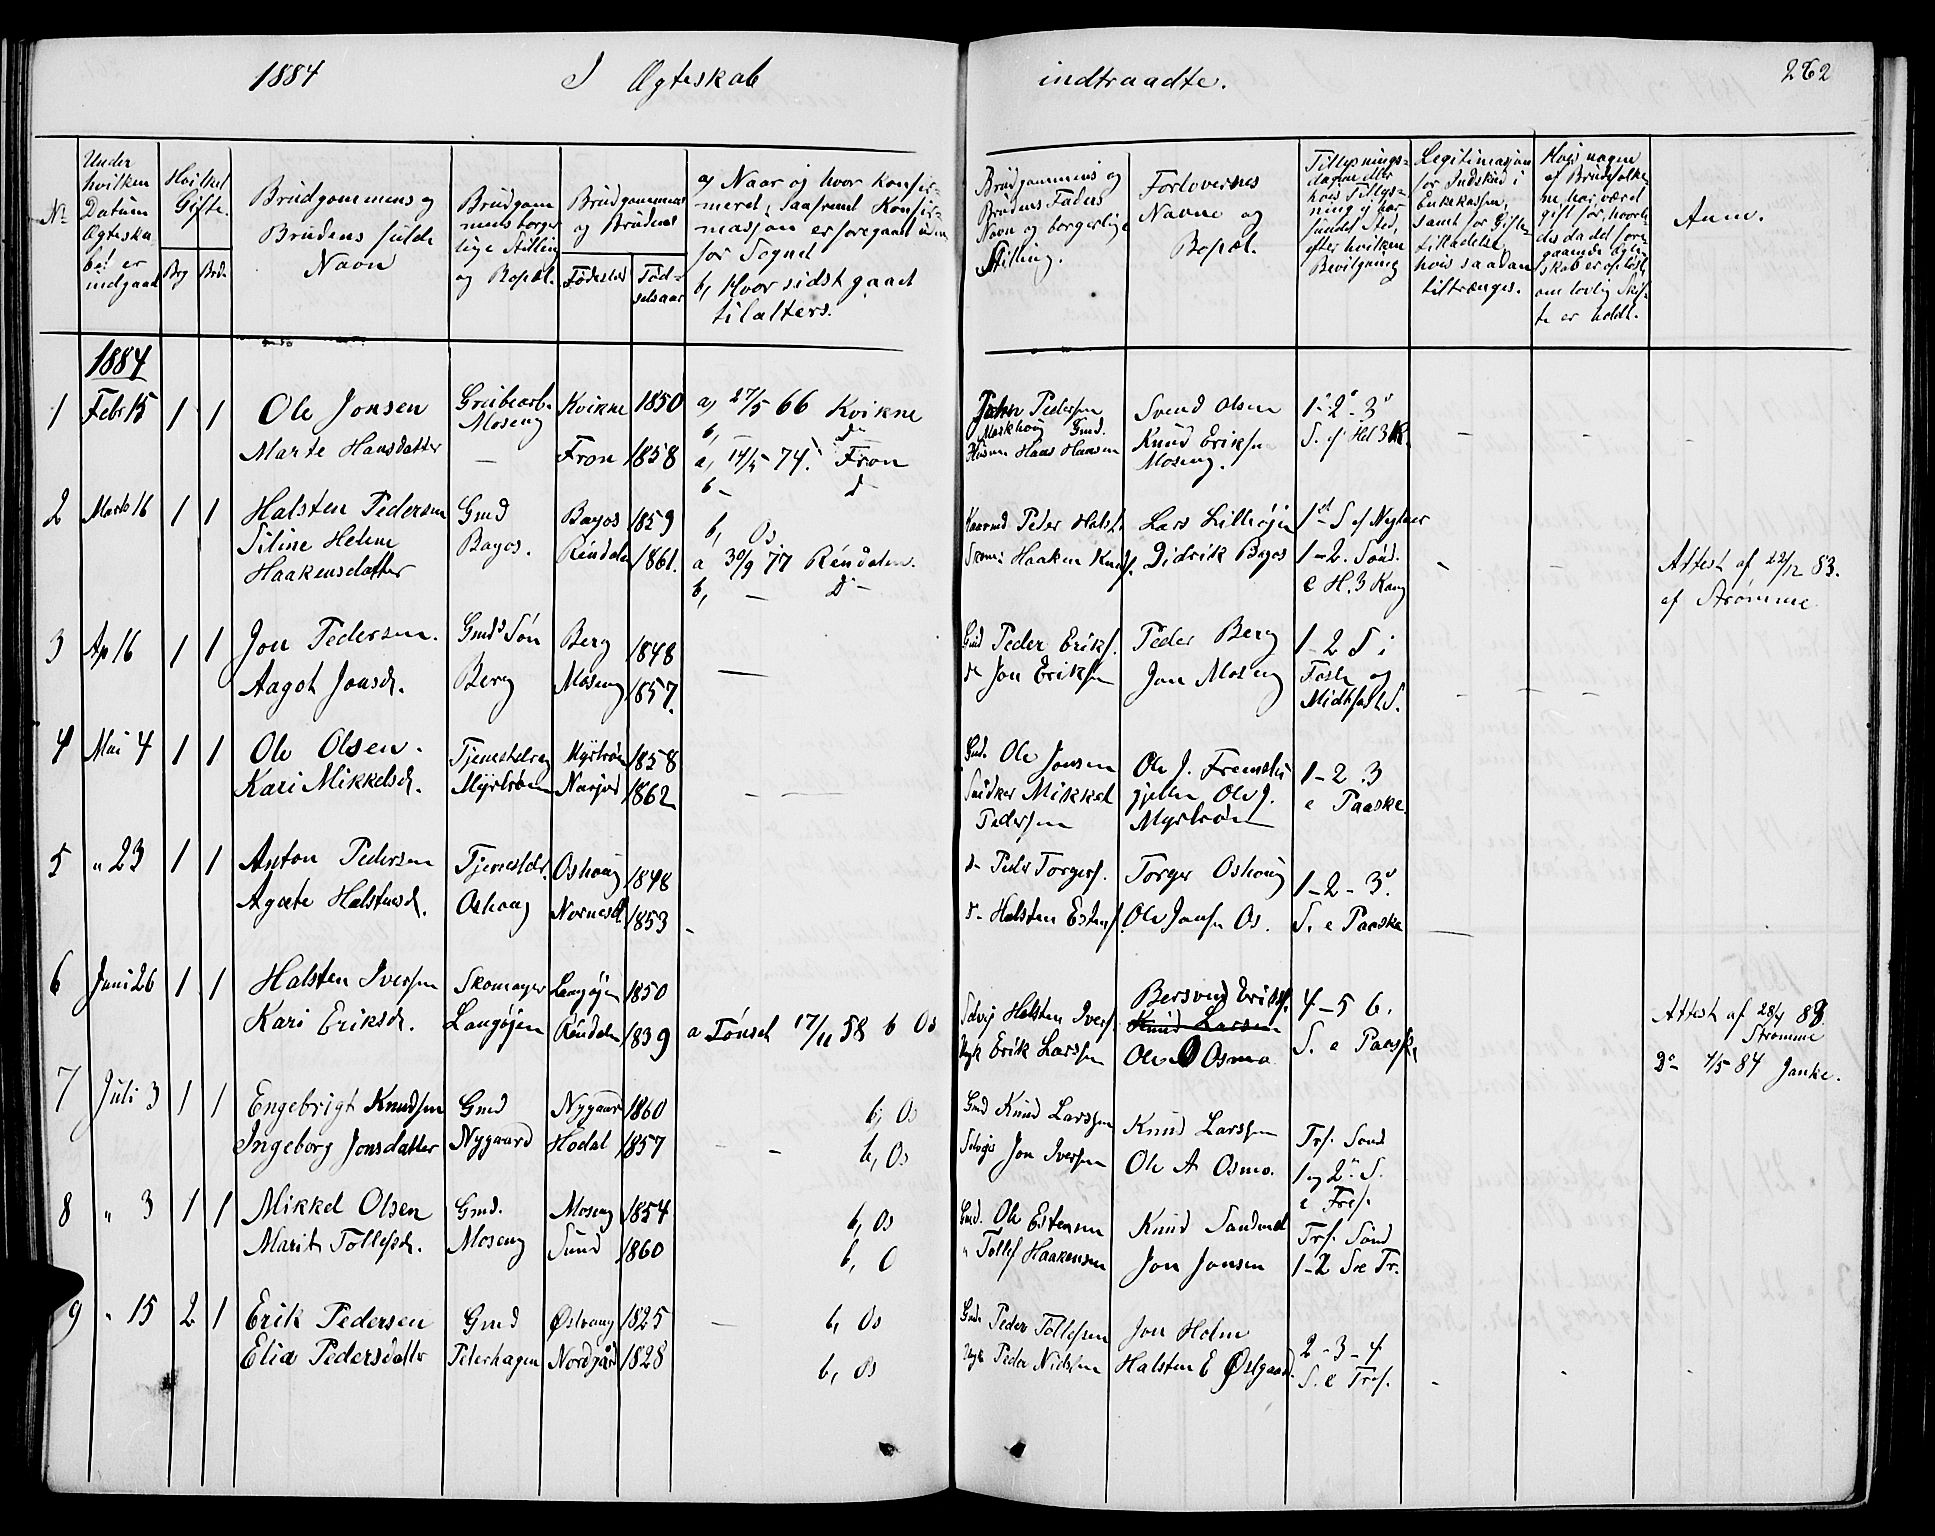 1884 I Ægteskab indtraadte. 262
No
Under hvilken Datum Ægteskabet er indgaaet
Hvilket Gifte.
Brg Brd.
Brudgommens og Brudens fulde Navn
Brudgommens borgerlige Stilling og Bopæl.
Brudgommens og Brudens
Fødested
Fødselsaar
a, Naar og hvor Konfirmeret, saafremt Konfirmasjon er foregaaet udenfor Sognet
b, Hvor sidst gaaet til alters.
Brudgommens og Brudens Faders Navn og borgerlige Stilling.
Forlovernes Navne og Bopæl.
Tillysningsdagene eller hvis Tillysning ej har fundet Sted, efter hvilken Bevilgning
Legitimasjon for Indskud i Enkekassen, samt for Giftetilladelse, hvis saadan tiltrænges.
Hvis nogen af Brudefolkene har været gift før, hvorledes da det foregaaende Ægteskab er opløst, om lovlig Skifte er holdt.
Anm.
1884
1 Febr 15 1 1 Ole Jonsen Grubearb. Moseng Kvikne 1850 a, 27/5 66 Kvikne John Pedersen Svend Olsen 1-2-3
b, do Moskhoug Gmd. S. f. Hel 3 K.
Marte Hansdatter — Fron 1858 a, 14/5 74. Fron Husm Hans Hansen Knud Eriksen Moseng.
b - d -
2 Marts 16 1 1 Halsten Pedersen Gmd Bagos 1859 b, Os Gaarmd Peder Halst. Lars Lilleøjen 1 S. ef Nytaar
Siline Helene Haakensdatter Bagos. Rendalen 1861. a 30/9 77 Rendalen. Haaken Knuds. Didrik Bagos 1-2. Sönd. e H. 3 Kong
b, — d - Attest af 22/12 83. af Strømme
3 Ap 16 1 1 Jon Pedersen. Gmds Søn Berg 1848 Gmd Peder Eriks. Peder Berg 1-2 S i
Aagot Jonsd. Berg Moseng 1857. — d- Jon Eriksen Jon Moseng Faste og Midtfast S.
4 Mai 4 1 1 Ole Olsen. Tjenestdreng Myrtrøen 1858 Gmd. Ole Jonsen Ole J. Fremstu 1-2.3
Kari Mikkelsd. Myrtrøen Narjord 1862 Snidker Mikkel Pedersen gjellen Ole J. Myrtrøen e Paaske.
5 " 23 1 1 Anton Pedersen Tjenestdr. Oshoug 1848 d- Peder Torgers. Torger Oshoug 1-2-3.
Agate Halstensd. Oshoug Nornesd. 1853 d- Halsten Estens. Ole Jonsen Os. S. e Paaske
6 Juni 26 1 1 Halsten Iversen Skomager Langøjen 1850 Selvej Halsten Ivers. Bersvend Eriks. 4-5 6.
Kari Eriksd. Langøjen Rendalen 1839 a Tønset 17/11 58 b Os Erik Larssen Knud Larssen Ole Osmo S. e Paaske
Attest af 28/4 88. Strømme
Do 4/5 84 Janke.
7 Juli 3 1 1 Engebrigt Knudsen Gmd Nygaard 1860 b, Os Gmd Knud Larssen Knud Larssen Trf. Sond
Ingeborg Jonsdatter Nygaard Hodal 1857 — — b, Os Selvejr Jon Iversen Ole A Osmo. 1 og 2. S. e Tref.
8 " 3 1 1 Mikkel Olsen Gmd. Moseng 1854 b, Os Gmd. Ole Estensen Knud Sandmel Trf. Sönd
Marit Tollefsd. Moseng Sund 1860 b, O " Tollef Haakensen Jon Jonsen 1-2 S e Tr.
9 " 15 2 1 Erik Pedersen Gmd Østvang 1825 — b, Os Gmd. Peder Tollefsen Jon Holm 2-3-4
Elia Pedersdatter Peterhagen Nordgård 1828 b, Os Peder Nilssen Halsten E Østgaard. S. e Tref.